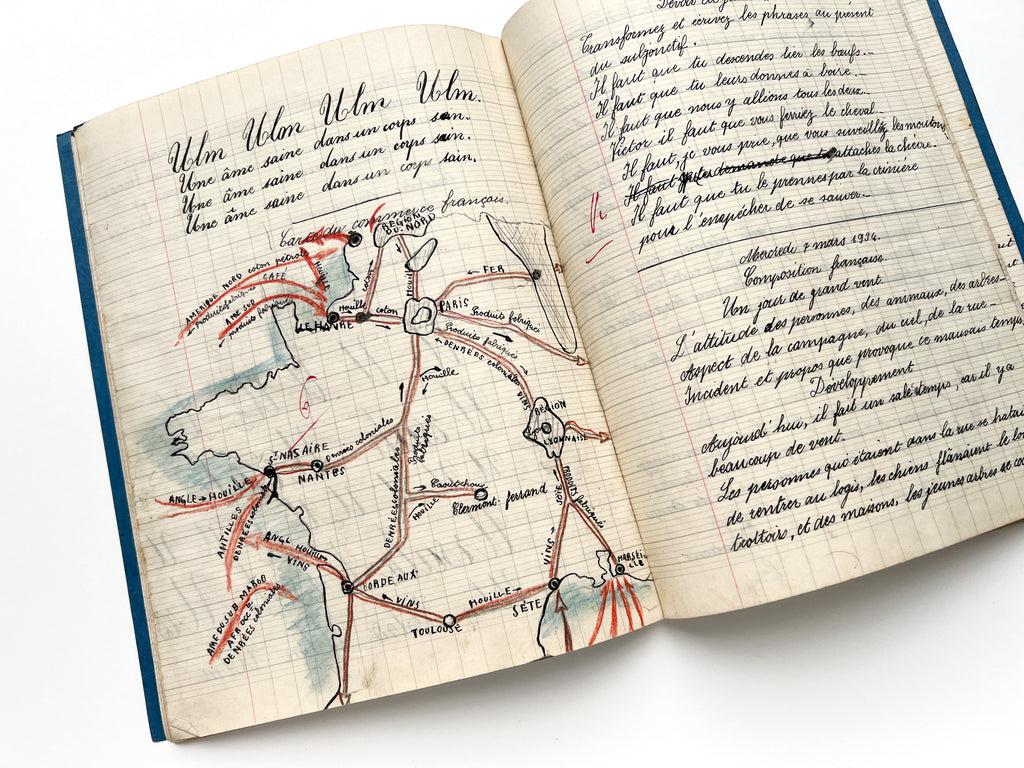 Ulm Ulm Ulm Ulm.
Une âme saine dans un corps sain.
Une âme saine dans un corps sain.
Une âme saine dans un corps sain.
Carte du commerce français.
RÉGION DU NORD
AMERIQUE NORD coton pétrole
produits fabriqués CAFÉ
AME SUD
produits fabriqués
HOUILLE
coton
HOUILLE
FER
LE HAVRE
Houille
coton
PARIS
Produits fabriqués
Produits fabriqués
DENRÉES coloniales
VINS
Houille
RÉGION
LYONNAISE
Produits fabriqués
Denrées coloniales
St NASAIRE
NANTES
ANGLE → HOUILLE
ANTILLES
DENRÉES coloniales
ANGL HOUILLE
VINS
DENRÉES coloniales
Caoutchouc
HOUILLE
Clermont-ferrand
SOIE
PRODUITS fabriqués
VINS
BORDEAUX
VINS
HOUILLE →
TOULOUSE
SÈTE
MARSEILLE
AME DU SUD MAROC
AFR OCC le
DENRÉES coloniales
6
Transformez et écrivez les phrases au présent
du subjonctif.
Il faut que tu descendes lier les bœufs.
Il faut que tu leurs donnes à boire.
Il faut que nous y allions tous les deux.
Victor il faut que vous ferriez le cheval.
Il faut, je vous prie, que vous surveilliez les moutons
Il faut je te demande que tu attaches la chèvre.
Il faut que tu le prennes par la crinière
pour l'empécher de se sauver.
Mercredi 7 mars 1934.
Composition française.
Un jour de grand vent.
L'attitude des personnes, des animaux, des arbres
Aspect de la campagne, du ciel, de la rue
Incident et propos que provoque ce mauvais temps
Développement
Aujourd'hui, il fait un sale temps, car il y a
beaucoup de vent.
Les personnes qui étaient dans la rue se hataient
de rentrer au logis, les chiens flânaient le
trottoirs, et des maisons, les jeunes arbres se